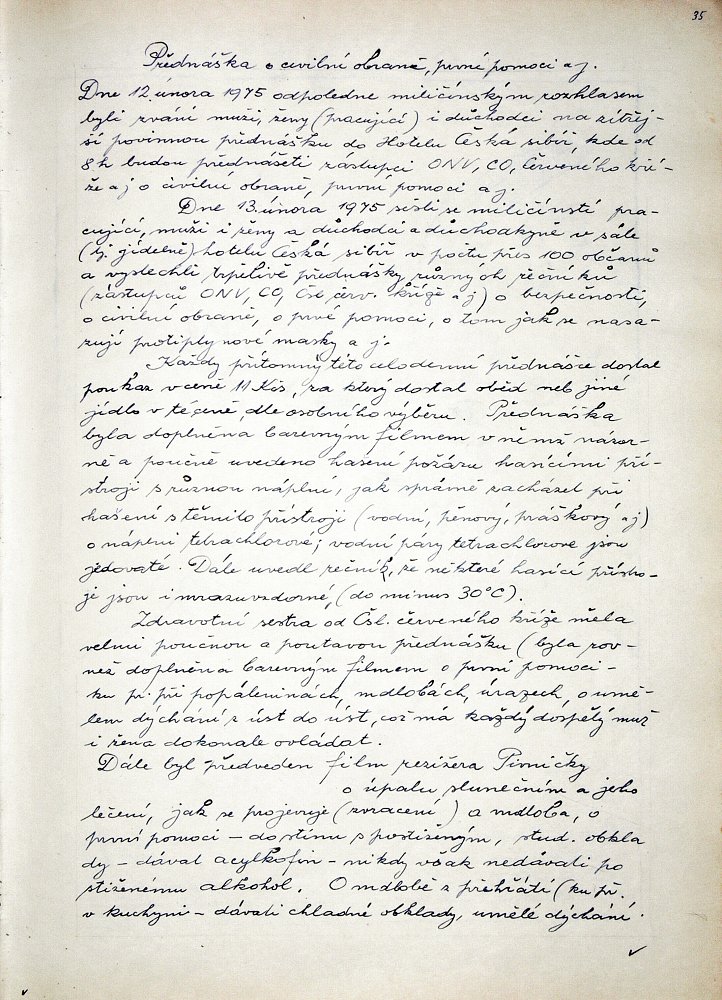 35
Přednáška o civilní obraně, první pomoci a j.
Dne 12. února 1975 odpoledne miličínským rozhlasem
byli zváni muži, ženy (pracující) i důchodci na zítřej-
ší povinnou přednášku do Hotelu Česká sibiř, kde od
8 h budou přednášeti zástupci ONV, CO, Červeného kří-
že a j o civilní obraně, první pomoci a j.
Dne 13. února 1975 sešli se miličínstí pra-
cující, muži i ženy a důchodci a důchodkyně v sále
(tj. jídelně) hotelu Česká sibiř v počtu přes 100 občanů
a vyslechli trpělivě přednášky různých řečníků
(zástupců ONV, CO, Čsl. červ. kříže a j) o bezpečnosti,
o civilní obraně, o prvé pomoci, o tom jak se nasa-
zují protiplynové masky a j.
Každý přítomný této celodenní přednášce dostal
poukaz v ceně 11 Kčs, za který dostal oběd neb jiné
jídlo v té ceně, dle osobního výběru. Přednáška
byla doplněna barevným filmem v němž názor-
ně a poučně uvedeno hasení požáru hasícími pří-
stroji s různou náplní, jak správně zacházet při
hašení s těmito přístroji (vodní, pěnový, práškový a j)
o náplni tetrachlorové; vodní páry tetrachlorové jsou
jedovaté. Dále uvedl řečník, že některé hasící přístro-
je jsou i mrazuvzdorné, (do minus 30°C).
Zdravotní sestra od Čsl. červeného kříže měla
velmi poučnou a poutavou přednášku (byla rov-
něž doplněna barevným filmem o první pomoci -
ku př. při popáleninách, mdlobách, úrazech, o umě-
lem dýchání z úst do úst, což má každý dospělý muž
i žena dokonale ovládat.
Dále byl předveden film režizéra Pivničky
o úpalu slunečním a jeho
léčení, jak se projevuje (zvracení) a mdloba, o
první pomoci - do stínu s postiženým, stud. obkla
dy - dávat acylkofin - nikdy však nedávati po
stiženému alkohol. O mdlobě z přehřátí (ku př.
v kuchyni - dávati chladné obklady, umělé dýchání.